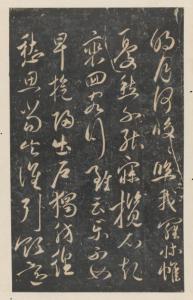 明月何皎皎照我羅床帷
憂愁不能寐攬衣起
裴回客行雖云樂不如
早旋歸出戶獨彷徨
愁思當告誰引領還